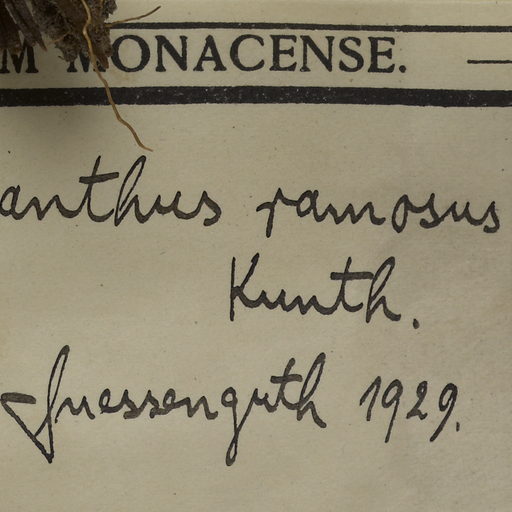 M MONACENSE.
anthus ramosus
Kunth.
Suessenguth 1929.